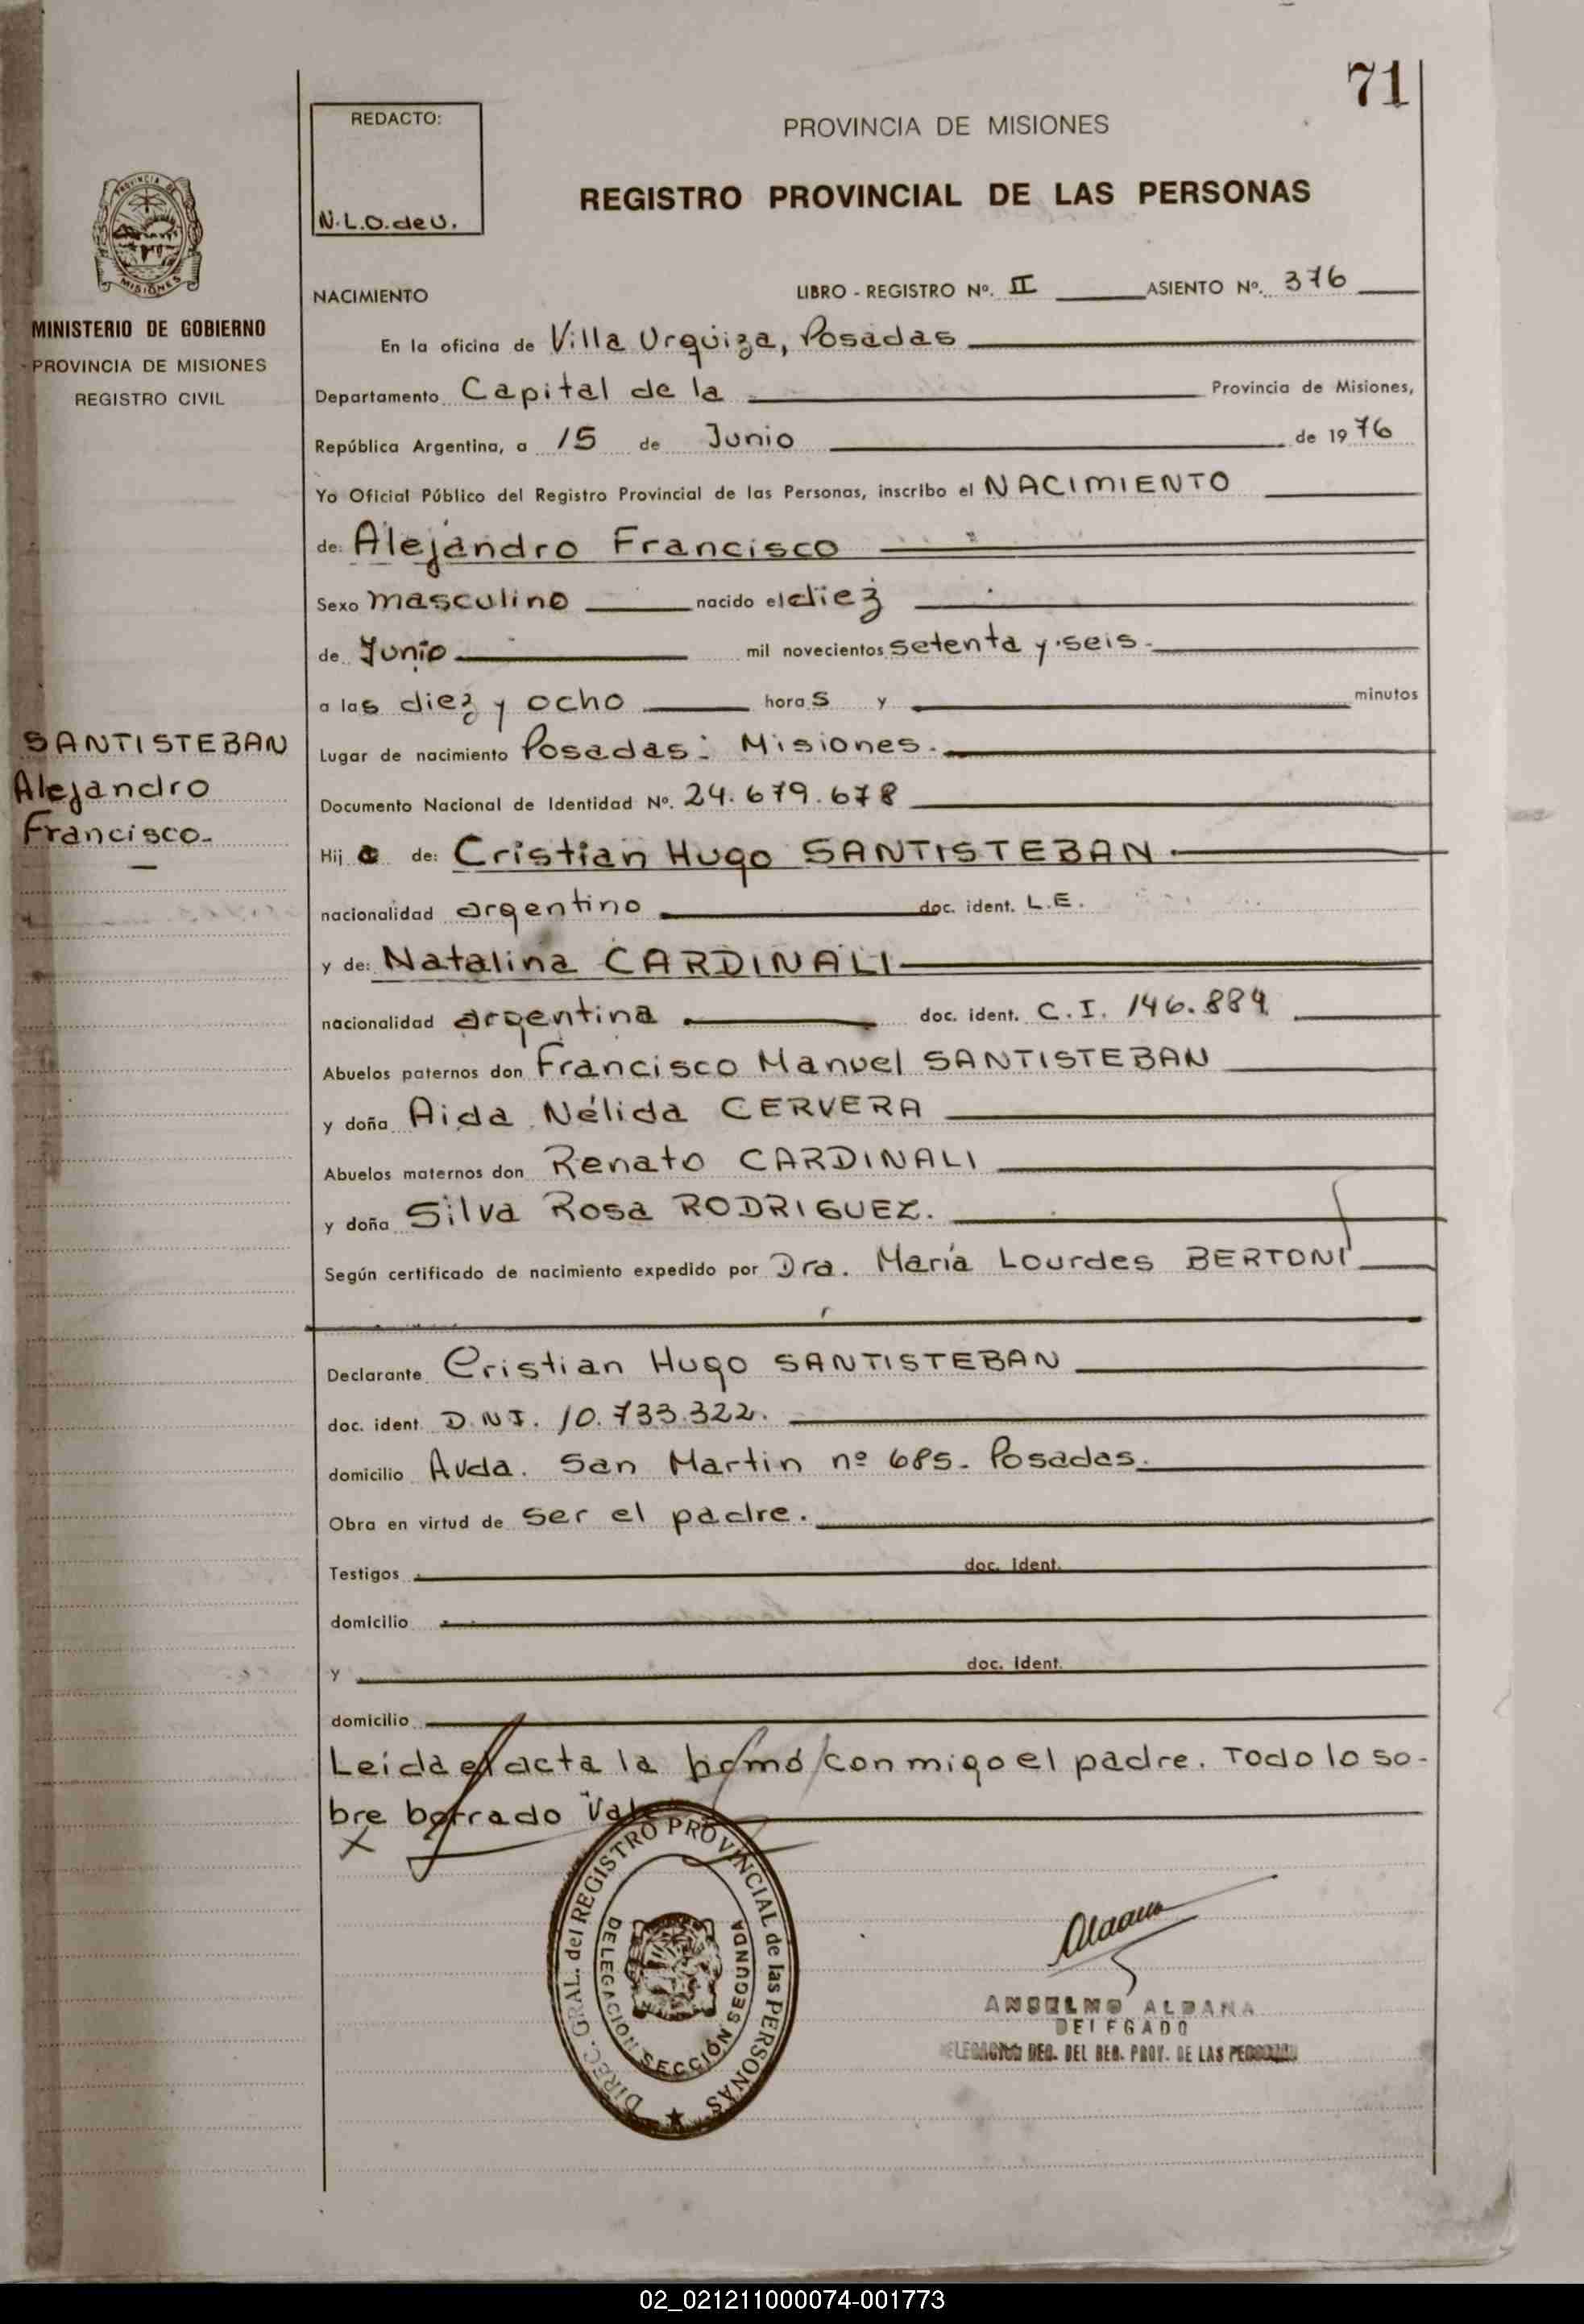 71
REDACTO:
N.L.O.deU.
PROVINCIA DE MISIONES
REGISTRO PROVINCIAL DE LAS PERSONAS
PROVINCIA DE
MISIONES
MINISTERIO DE GOBIERNO
PROVINCIA DE MISIONES
REGISTRO CIVIL
NACIMIENTO LIBRO - REGISTRO Nº. II ASIENTO Nº. 376
En la oficina de Villa Urquiza, Posadas
Departamento Capital de la Provincia de Misiones,
República Argentina, a 15 de Junio de 1976
Yo Oficial Público del Registro Provincial de las Personas, inscribo el NACIMIENTO
de: Alejandro Francisco
Sexo masculino nacido el diez
de Junio mil novecientos setenta y seis.
a las diez y ocho horas y minutos
SANTISTEBAN
Alejandro
Francisco.
Lugar de nacimiento Posadas: Misiones.
Documento Nacional de Identidad Nº. 24.679.678
Hijo de: Cristian Hugo SANTISTEBAN
nacionalidad argentino doc. ident. L.E.
y de: Natalina CARDINALI
nacionalidad argentina doc. ident. C.I. 146.889
Abuelos paternos don Francisco Manuel SANTISTEBAN
y doña Aida Nélida CERVERA
Abuelos maternos don Renato CARDINALI
y doña Silva Rosa RODRIGUEZ.
Según certificado de nacimiento expedido por Dra. María Lourdes BERTONI
Declarante Cristian Hugo SANTISTEBAN
doc. ident. D.N.I. 10.733.322.
domicilio Avda. San Martin nº 685. Posadas.
Obra en virtud de ser el padre.
Testigos doc. ident.
domicilio
y doc. ident.
domicilio
Leída el acta la conmigo el padre. Todo lo so-
bre borrado Vale
X
DIREC. GRAL. del REGISTRO PROVINCIAL de las PERSONAS
DELEGACION SECCIÓN SEGUNDA
ANSELMO ALDANA
DELEGADO
DEL REG. PROV. DE LAS
02_021211000074-001773